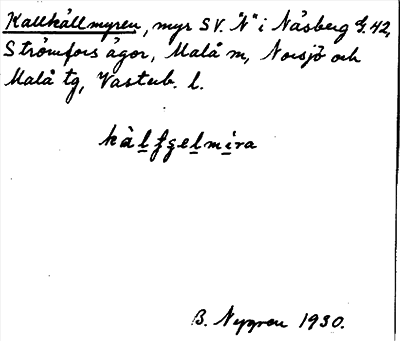 Kallkällmyren, myr SV. "N" i Näsberg G. 42,
Strömfors ägor, Malå m, Norsjö och
Malå tg, Västerb. l.
kàlfgelmira
B. Nygren 1930.